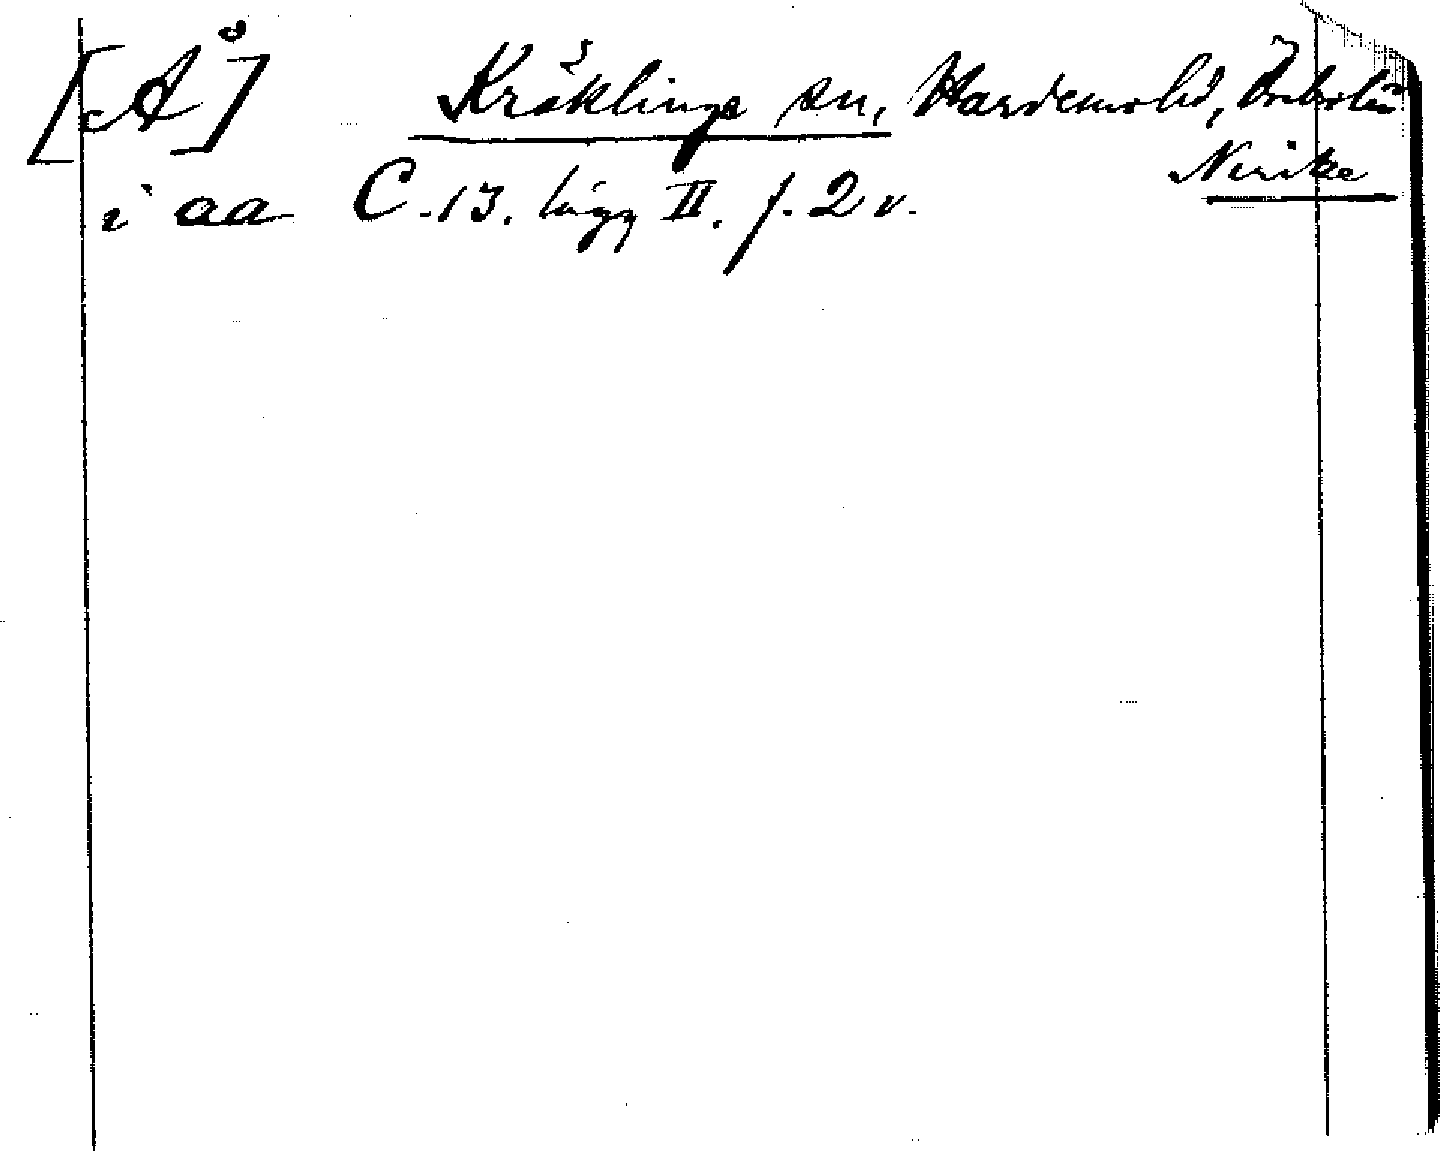 [Å] Kräklinge sn, Hardemo hd, Örebro län
Nerike
i aa C.13. lägg II. f. 2 v.